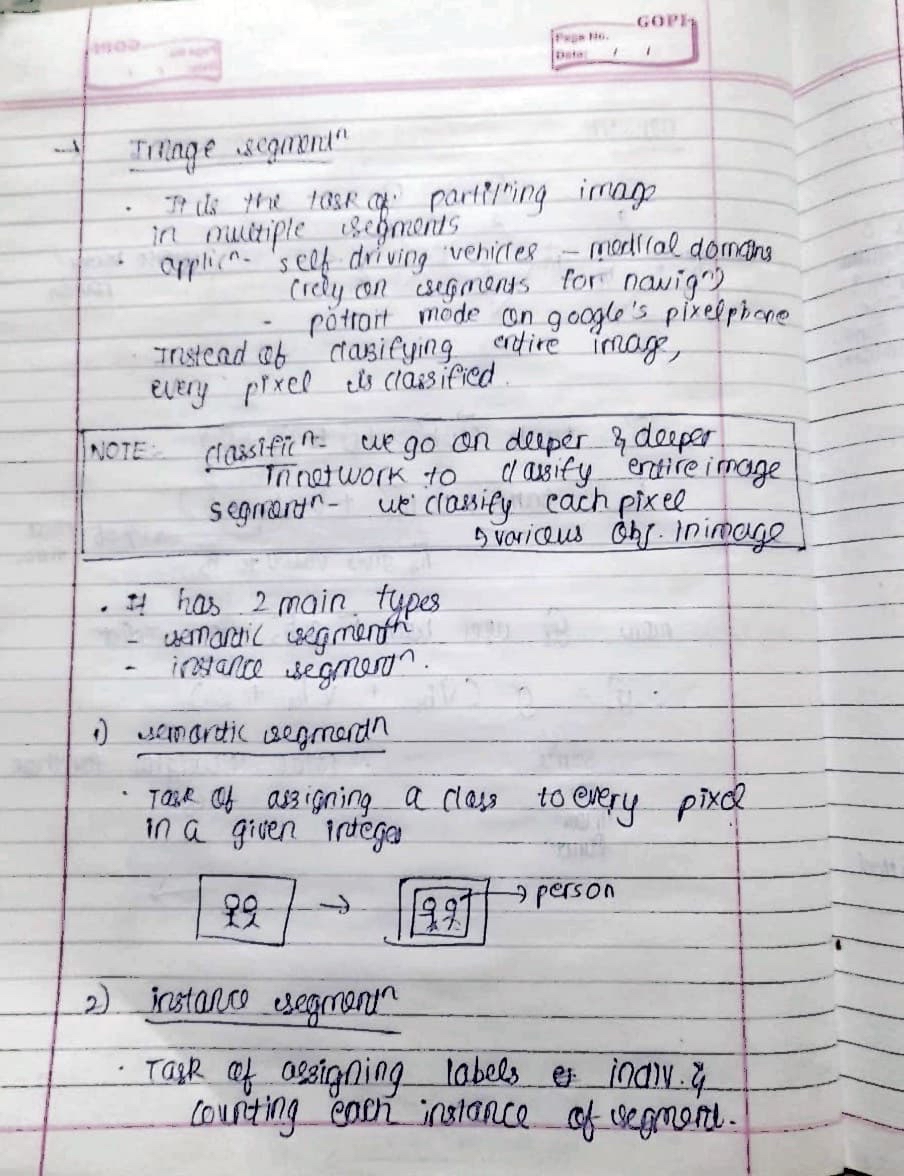 GOPI
Page No.
Date: / /
→ Image segmentⁿ
· It is the task of partitiⁿing image
in multiple segments
· applicⁿ- self driving vehicles - medical domains
(rely on segments for navigⁿ)
- potrait mode on google's pixelphone
· Instead of classifying entire image,
every pixel is classified.
NOTE: classificⁿ- we go on deeper & deeper
in network to classify entire image
segmentⁿ- we classify each pixel
↳ various obj. in image
· It has 2 main types
- semantic segmentⁿ
- instance segmentⁿ.
1) semantic segmentⁿ
· Task of assigning a class to every pixel
in a given integer
→ → person
2) instance segmentⁿ
· Task of assigning labels indiv. &
counting each instance of segment.